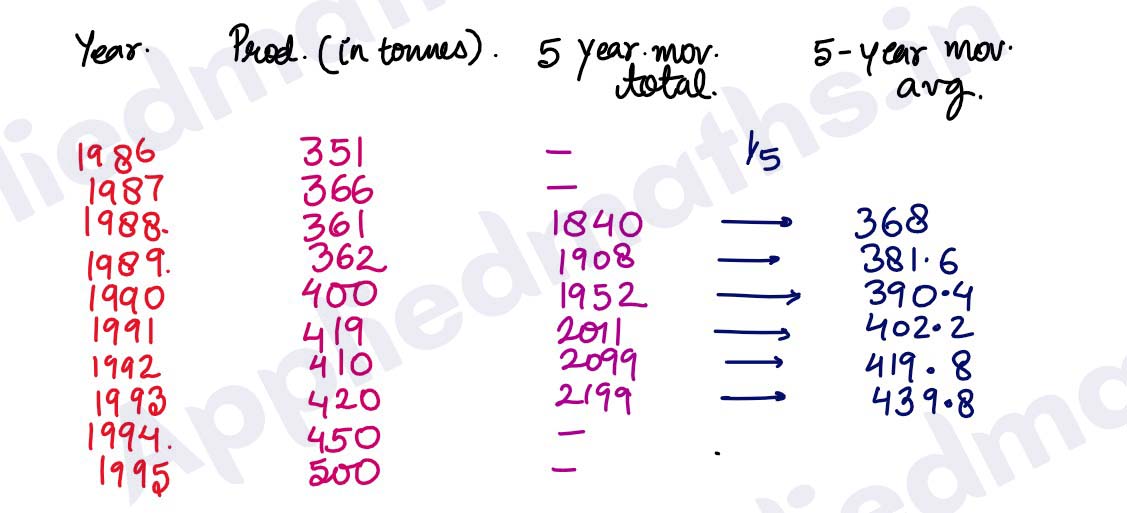 Year. Prod. (in tonnes). 5 year. mov. total. 5-year mov. avg.
1/5
1986 351 –
1987 366 –
1988. 361 1840 → 368
1989. 362 1908 → 381.6
1990 400 1952 → 390.4
1991 419 2011 → 402.2
1992 410 2099 → 419.8
1993 420 2199 → 439.8
1994. 450 –
1995 500 –
Appliedmaths.in